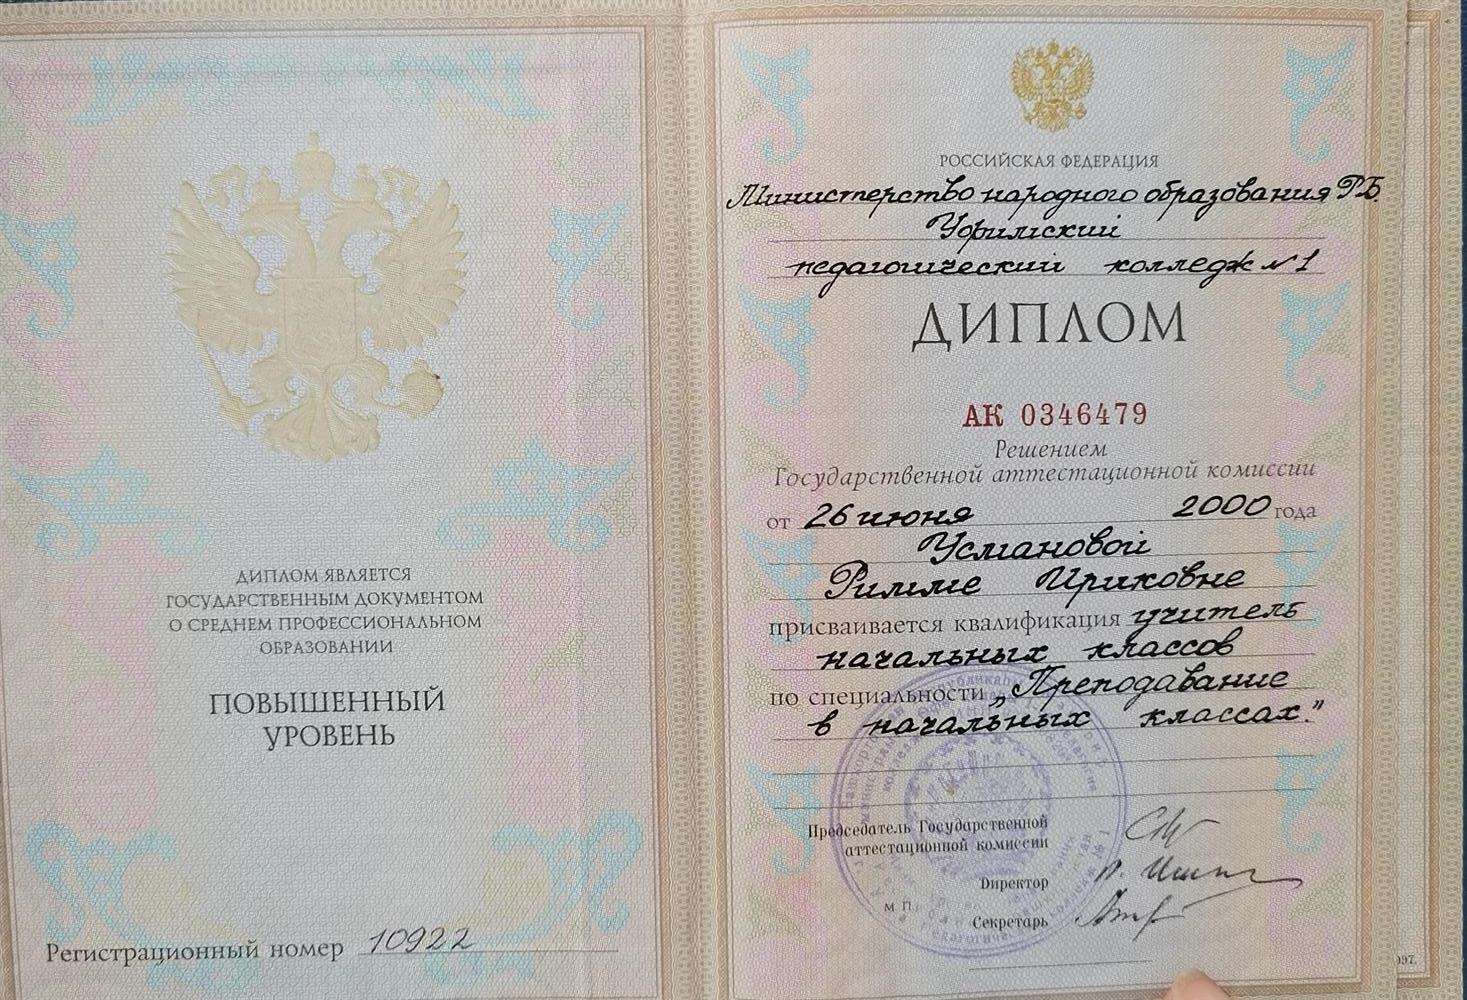 ДИПЛОМ ЯВЛЯЕТСЯ
ГОСУДАРСТВЕННЫМ ДОКУМЕНТОМ
О СРЕДНЕМ ПРОФЕССИОНАЛЬНОМ
ОБРАЗОВАНИИ
ПОВЫШЕННЫЙ
УРОВЕНЬ
Регистрационный номер 10922
РОССИЙСКАЯ ФЕДЕРАЦИЯ
Министерство народного образования РБ.
Уфимский
педагогический колледж №1
ДИПЛОМ
АК 0346479
Решением
Государственной аттестационной комиссии
от 26 июня 2000 года
Усмановой
Римме Ириковне
присваивается квалификация учитель
начальных классов
по специальности „Преподавание
в начальных классах."
Председатель Государственной
аттестационной комиссии
Директор
М.П.
Секретарь